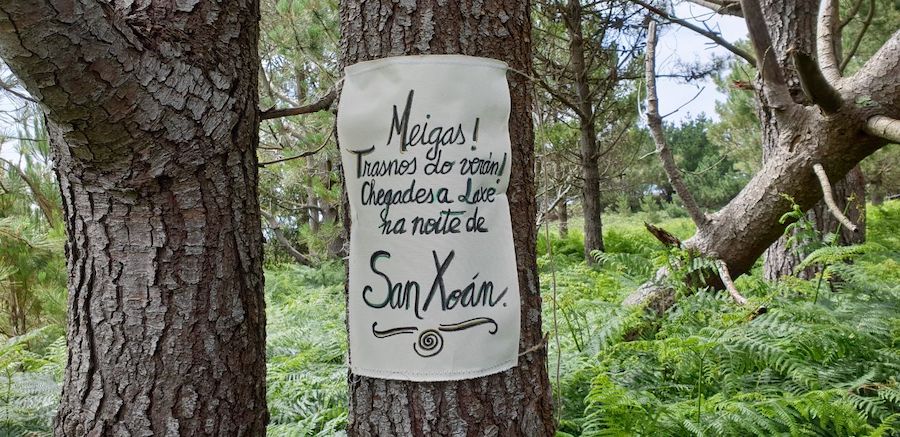 Meigas!
Trasnos do verán!
Chegades a Laxe
na noite de
San Xoán.